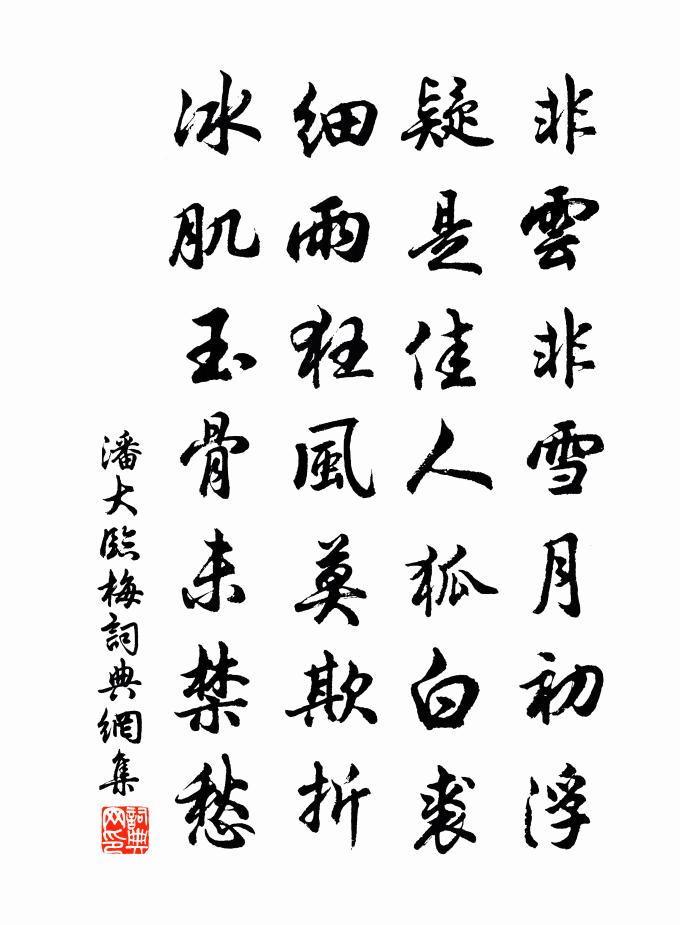 非雲非雪月初浮
疑是佳人狐白裘
細雨狂風莫欺折
冰肌玉骨未禁愁
潘大臨梅詞典網集
詞典网印